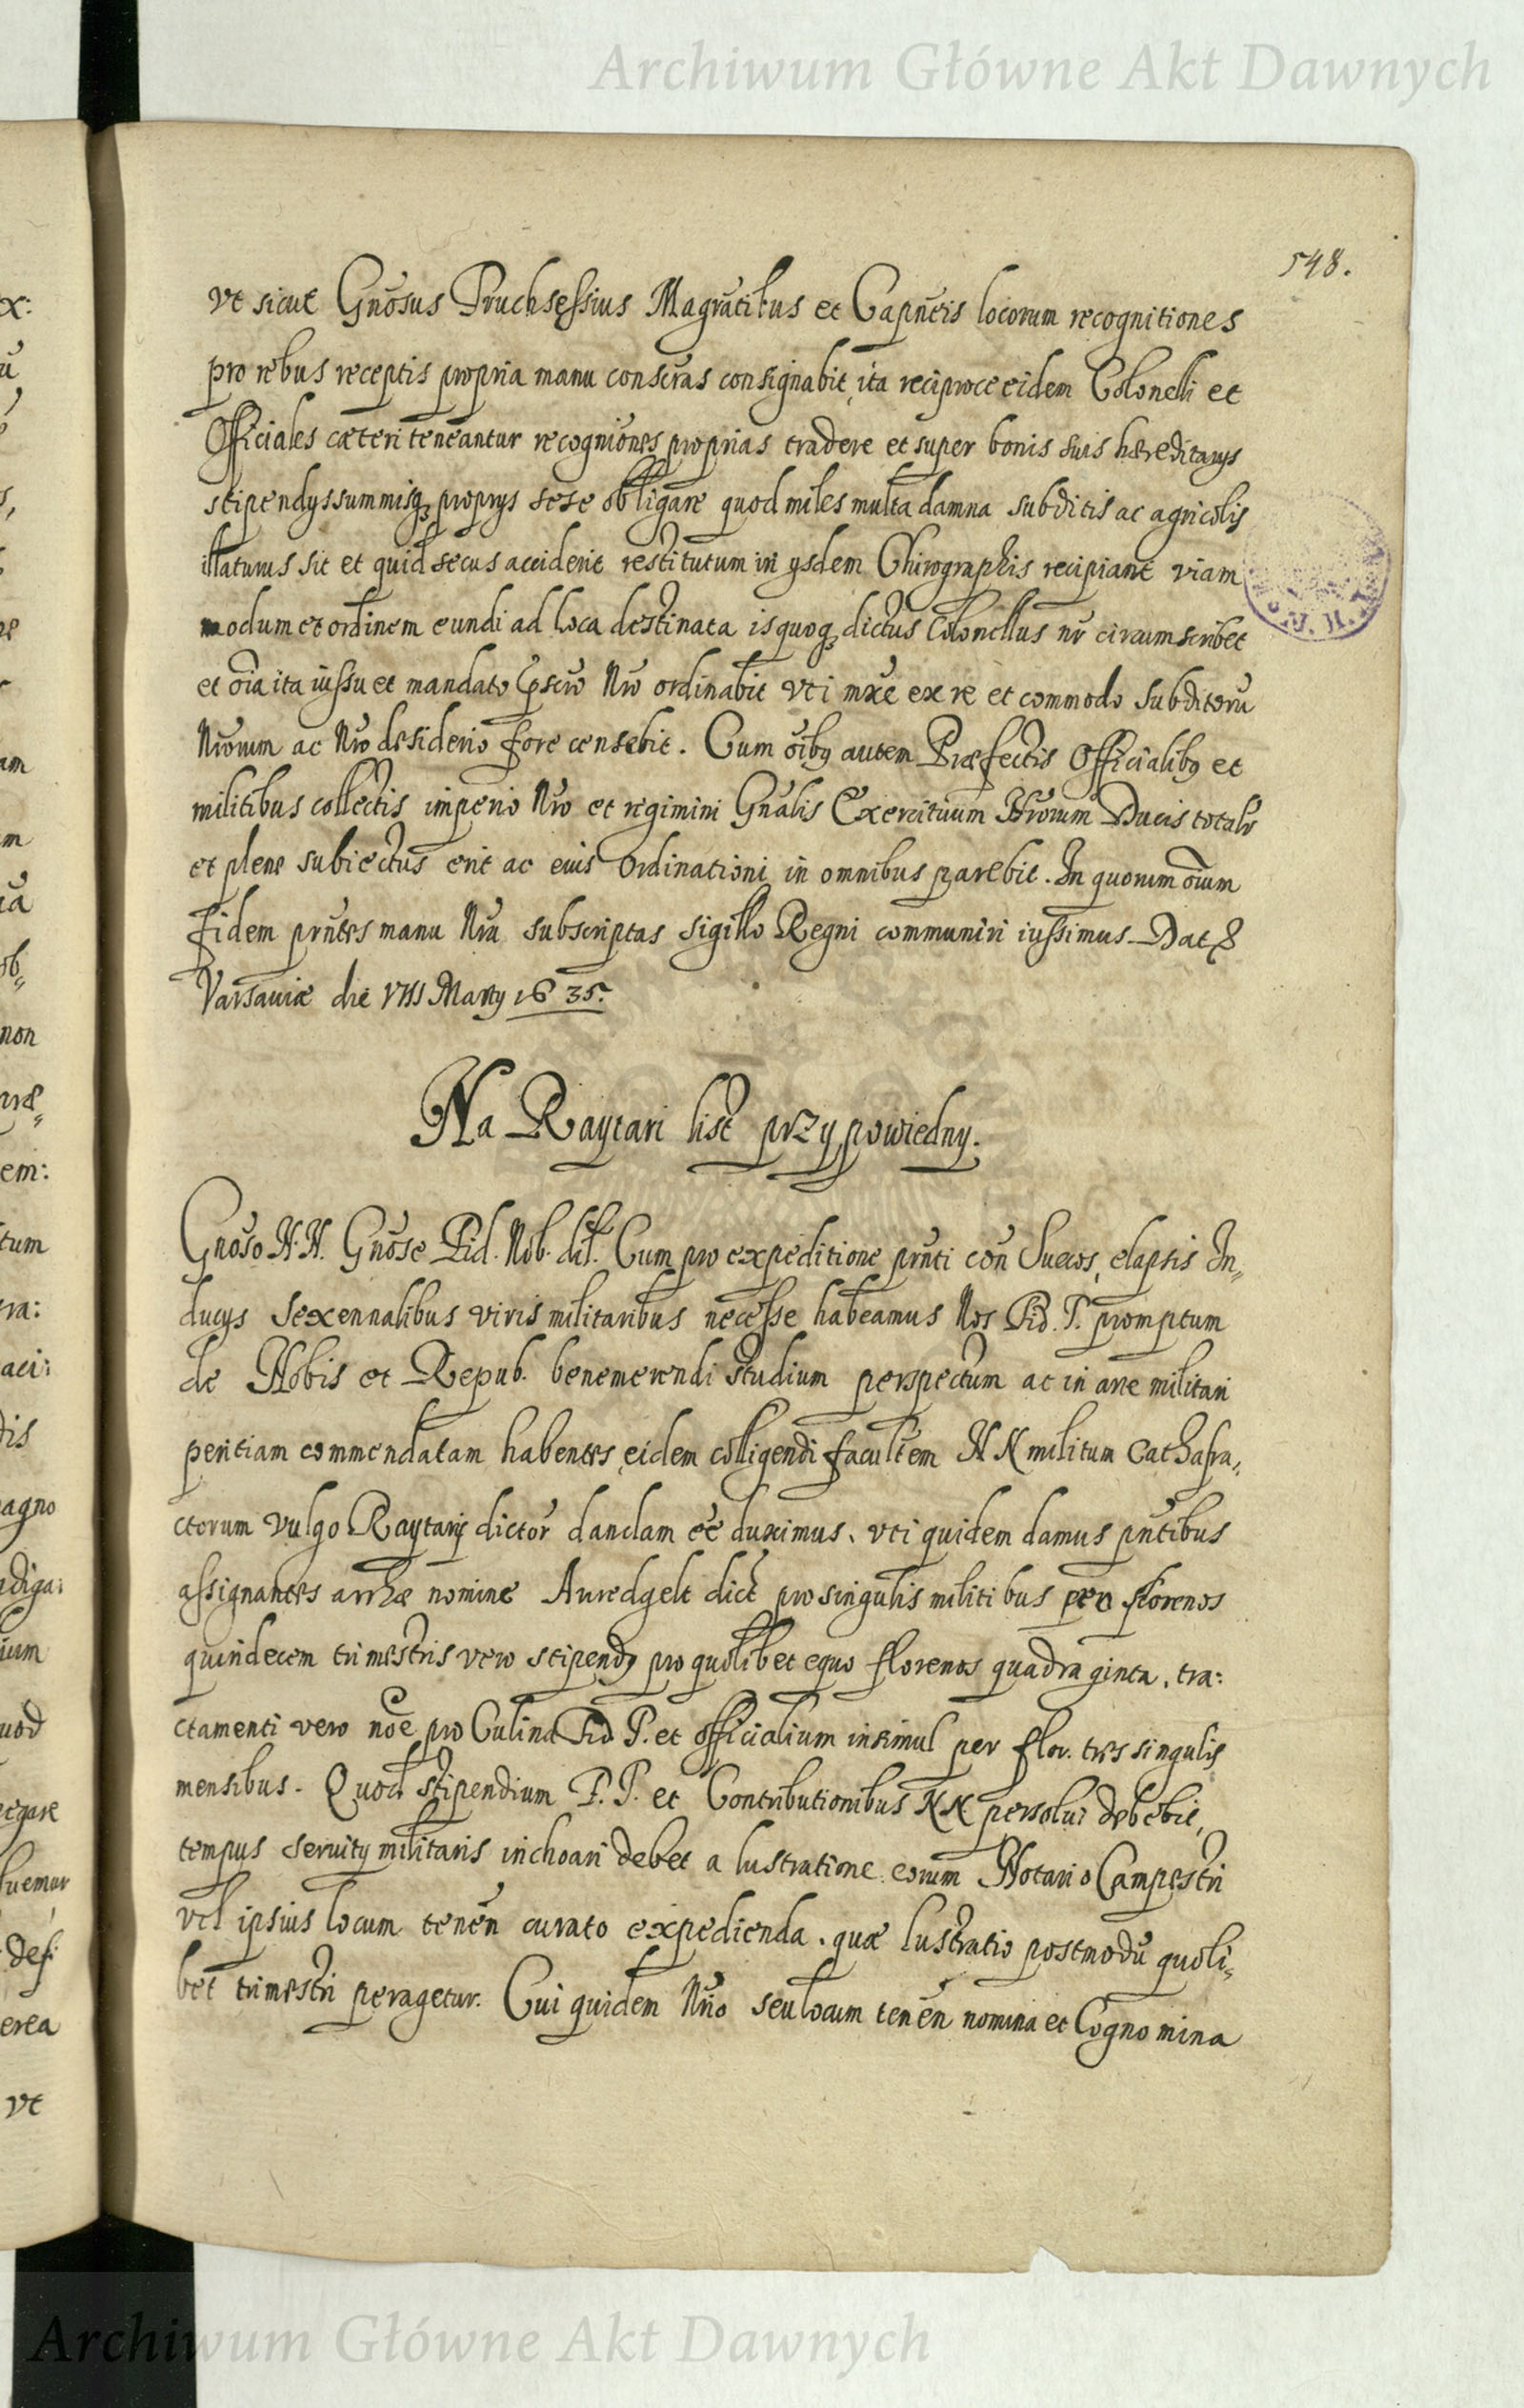 Archiwum Główne Akt Dawnych
548.
vt sicut Gnōsus Truchsessius Magrātibus et Capnēis locorum recognitiones
pro rebus receptis propria manu conscrās consignabit, ita reciproce eidem Colonelli et
Officiales cæteri teneantur recogniōnes proprias tradere et super bonis suis hæreditarys
stipendys summisq proprys sese obligare quod miles multa damna subditis ac agricolis
illaturus sit et quid secus acciderit restitutum in ysdem Chirographis recipiant viam
modum et ordinem eundi ad loca destinata is quoq dictus Colonellus nr̄ circumscribet
et oīa ita iussu et mandato Nrō ordinabit vti mxē ex re et commodo subditorū
Nrōrum ac Nrō desiderio fore censebit. Cum oībq autem Præfectis Officialibq et
militibus collectis imperio Nrō et regimini Gnālis Exercituum Nrōrum Ducis totalr
et plene subiectus erit ac eius ordinationi in omnibus parebit. In quorum oīum
fidem prn̄tes manu Nrā subscriptas sigillo Regni communiri iussimus. Dat
Varsauiæ die VIII Marty 1635.
Na Raytari list przypowiedny.
Gnōso N. N. Gnōse Fid. Nob. dil. Cum pro expeditione prn̄ti con̄ Suecos, elapsis In„
ducys sexennalibus viris militaribus necesse habeamus Nos Fid. T. promptum
de Nobis et Repub. benemerendi studium perspectum ac in arte militari
peritiam commendatam habentes, eidem colligendi facultem N N militum Cathafra„
ctorum vulgo Raytarij dictor̄ dandam eē duximus, vti quidem damus pn̄tibus
assignantes arrhæ nomine Anredgelt dict pro singulis militibus per florenos
quindecem trimestris vero stipendy pro quolibet equo florenos quadraginta, tra:
ctamenti vero noē pro Culina Fid T. et officialium insimul per flor. tres singulis
mensibus. Quod stipendium F. T. et Contributionibus N N persolui debebit,
tempus seruity militaris inchoari debet a lustratione eorum Notario Campestri
vel ipsius locum tenēn curato expedienda, quæ lustratio postmodū quoli„
bet trimestri peragetur. Cui quidem Nrō seu locum tenēn nomina et Cognomina
Archiwum Główne Akt Dawnych